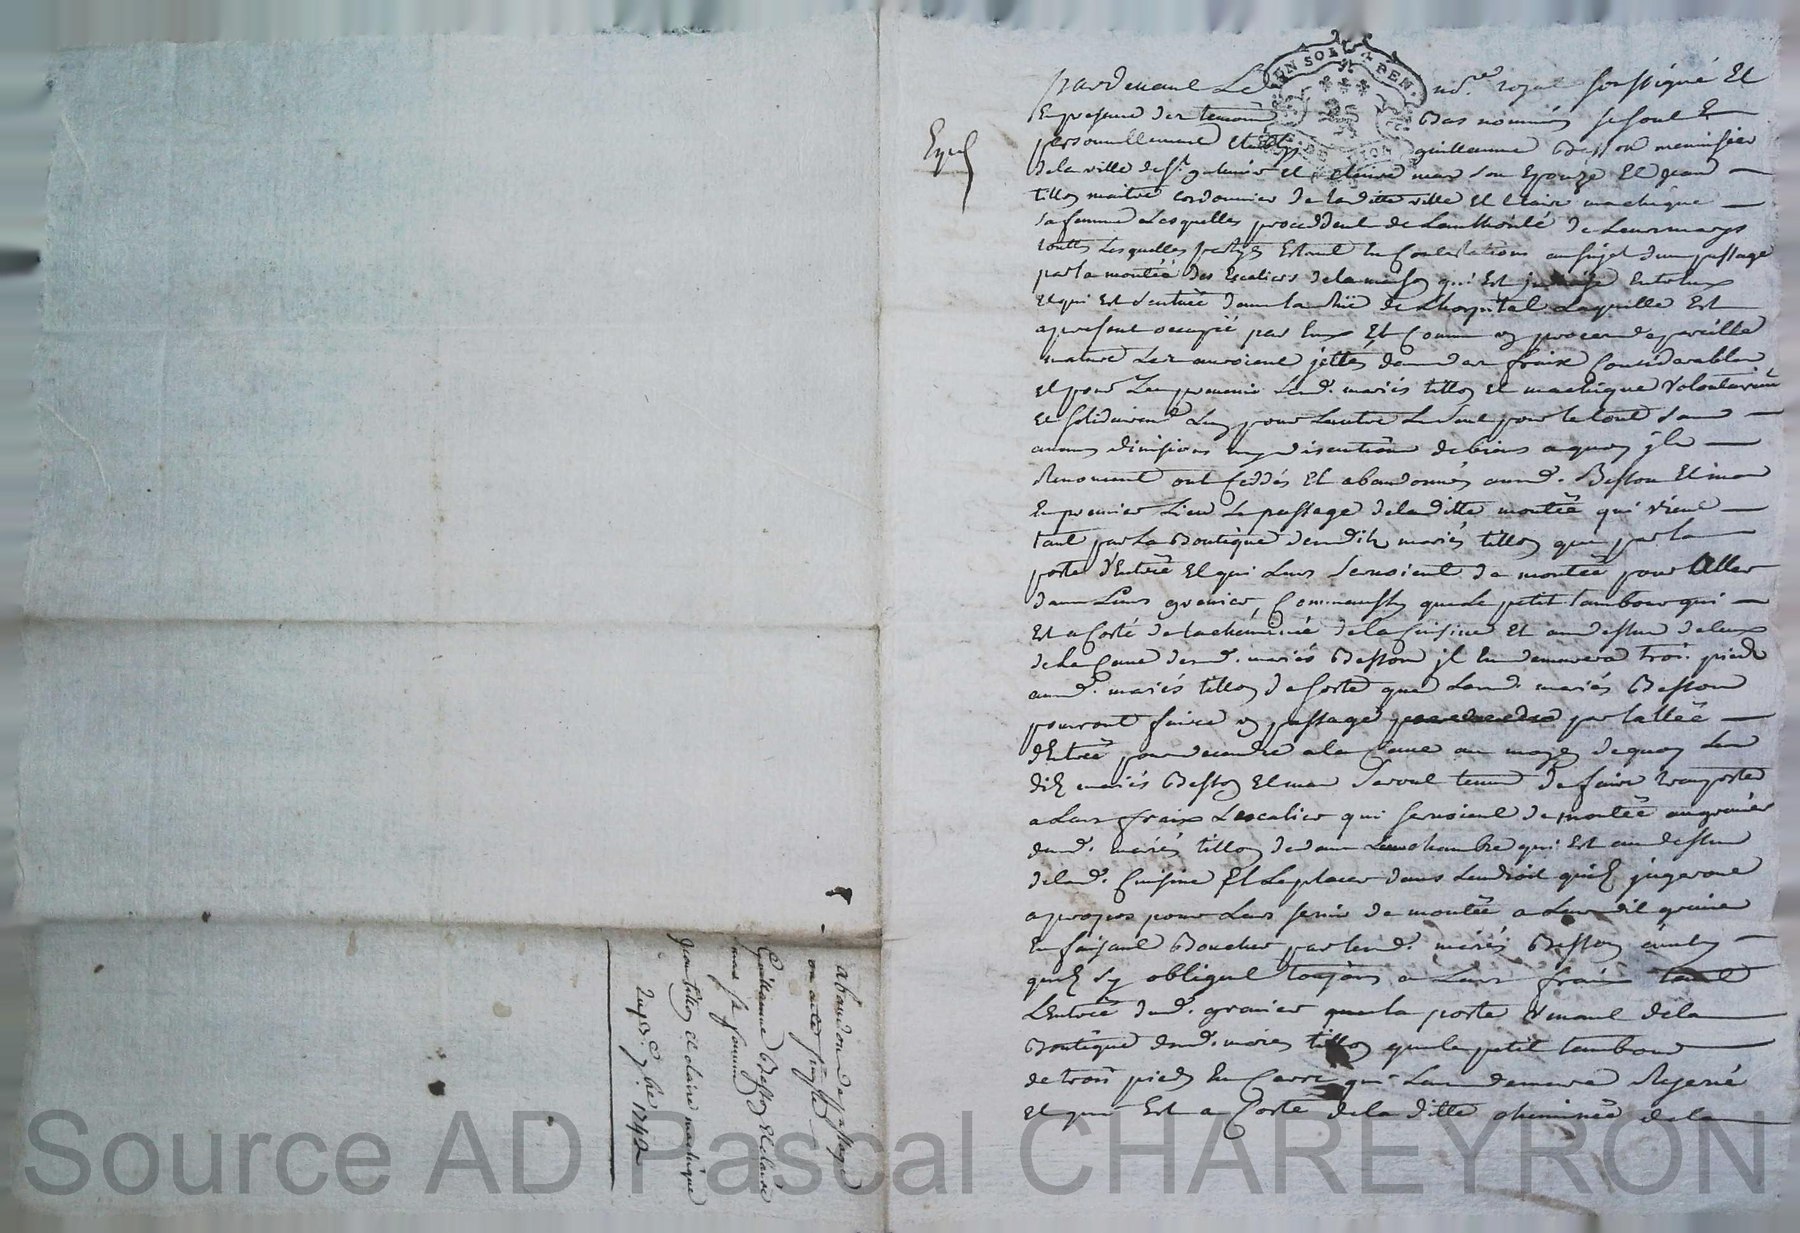 Expé
UN SOL
DEN.
Pardevant Le nore royal soussigné Et
En presence des temoins Bas nommés se sont Et
personnellement Etablys guillaume Besson menuisier
de la ville de St galmier et claire mas son Epouze Et jean
tillon maitre cordonnier de la ditte ville Et Claire machigue
sa femme Lesquelles procedent de Lauthorité de Leurs marys
touttes Lesquelles partyes Estant En Contestations au sujet dun passage
par la montéé des Escaliers de la maison qui Est jndivise Entreux
Et qui Est scituéé dans la Rüe de Lhospital Laquelle Est
apresent occupéé par Eux Et Comme un procez de pareille
nature Les auroient jettés dans des fraix Considerables
et pour Les prevenir Lesd. mariés tillon et machigue volontairemt
et solidairemt Lun pour Lautre Le seul pour le tout sans
aucune divisions ny discution de biens a quoy jls
Renoncent ont Ceddés Et abandonnés auxd. Besson Et mas
En premier Lieu Le passage de laditte montéé qui vient
tant par La Boutique desdits mariés tillon que par la
porte d'Entréé Et qui Leurs servoient de montéé pour Aller
dans Leurs grenier, Comm'aussy que Le petit tambour qui
Est a Costé de la cheminéé de la Cuisine Et au dessus de
de la Cave desd. mariés Besson jl En demeurera trois pieds
auxd. mariés tillon de sorte que Lesd. mariés Besson
pourront faire un passage par lalléé
d'Entréé pour decendre a la Cave au moyen de quoy Les
dits mariés Besson Et mas seront tenus de faire transporter
a Leurs fraix Lescalier qui servoient de montéé au grenier
desd. mariés tillon dedans Leurs chambre qui Est au dessus
de lad. Cuisine Et Le placer dans Lendroit quils jugeront
apropos pour Leurs servir de montéé a Leurdit grenier
En faisant Boucher par lesd. mariés Besson
quils sy obligent toujours a Leurs fraix tant
L'Entréé dud. grenier que la porte venant de la
Boutique desd. mariés tillon que le petit tambour
de trois pieds En Carré qui Leurs demeure Reservé
Et qui Est a Costé de la ditte cheminéé de la
abandon de passage
ou acte simple
Guillaume Besson Et claire
mas sa femme
Jean tillon et claire machigue
Du 7bre 1742
Source AD Pascal CHAREYRON